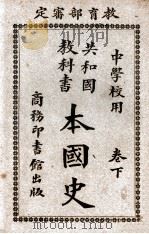 教育部審定
中學校用
共和國
教科書
本國史
卷下
商務印書館出版